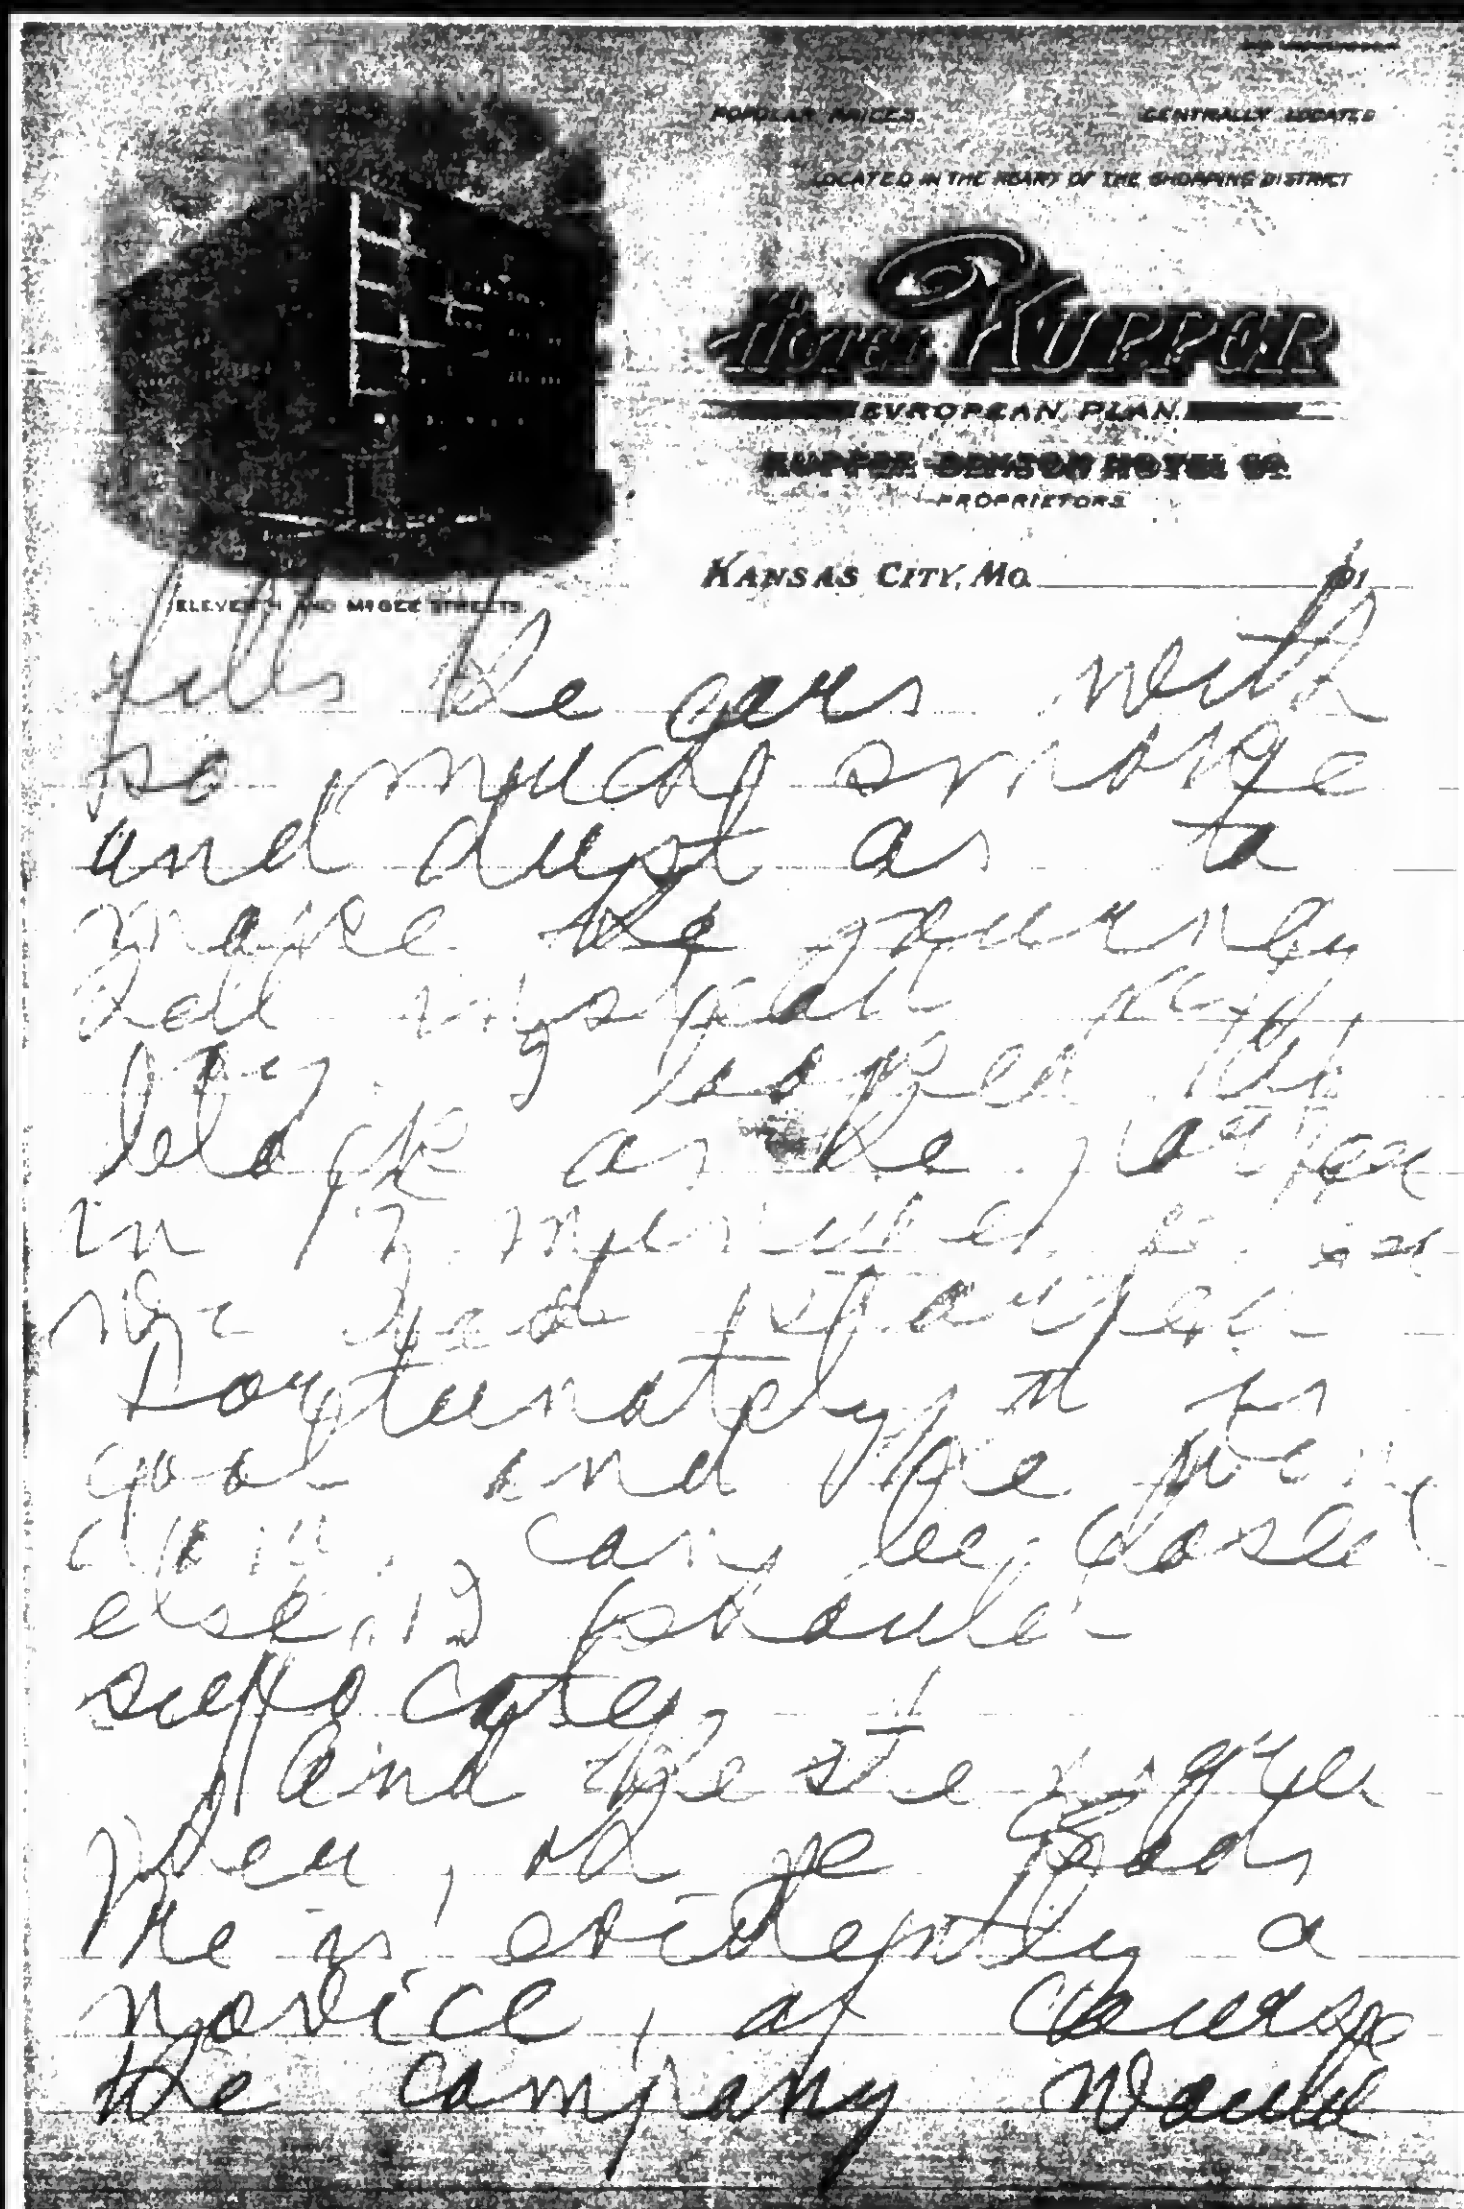 POPULAR PRICES
CENTRALLY LOCATED
LOCATED IN THE HEART OF THE SHOPPING DISTRICT
HOTEL KUPPER
EVROPEAN PLAN
KUPPER-BENSON HOTEL CO.
PROPRIETORS
KANSAS CITY, MO. 191
ELEVENTH AND MCGEE STREETS
fills the cars with
so much smoke
and dust as to
make the journey
hell
I looked as
black as the
in 17 minutes
we had started
Fortunately it is
cool and the win
dows can be closed
else I should
suffocate.
And the
men, oh ye Gods
He is evidently a
novice, of course
the company would